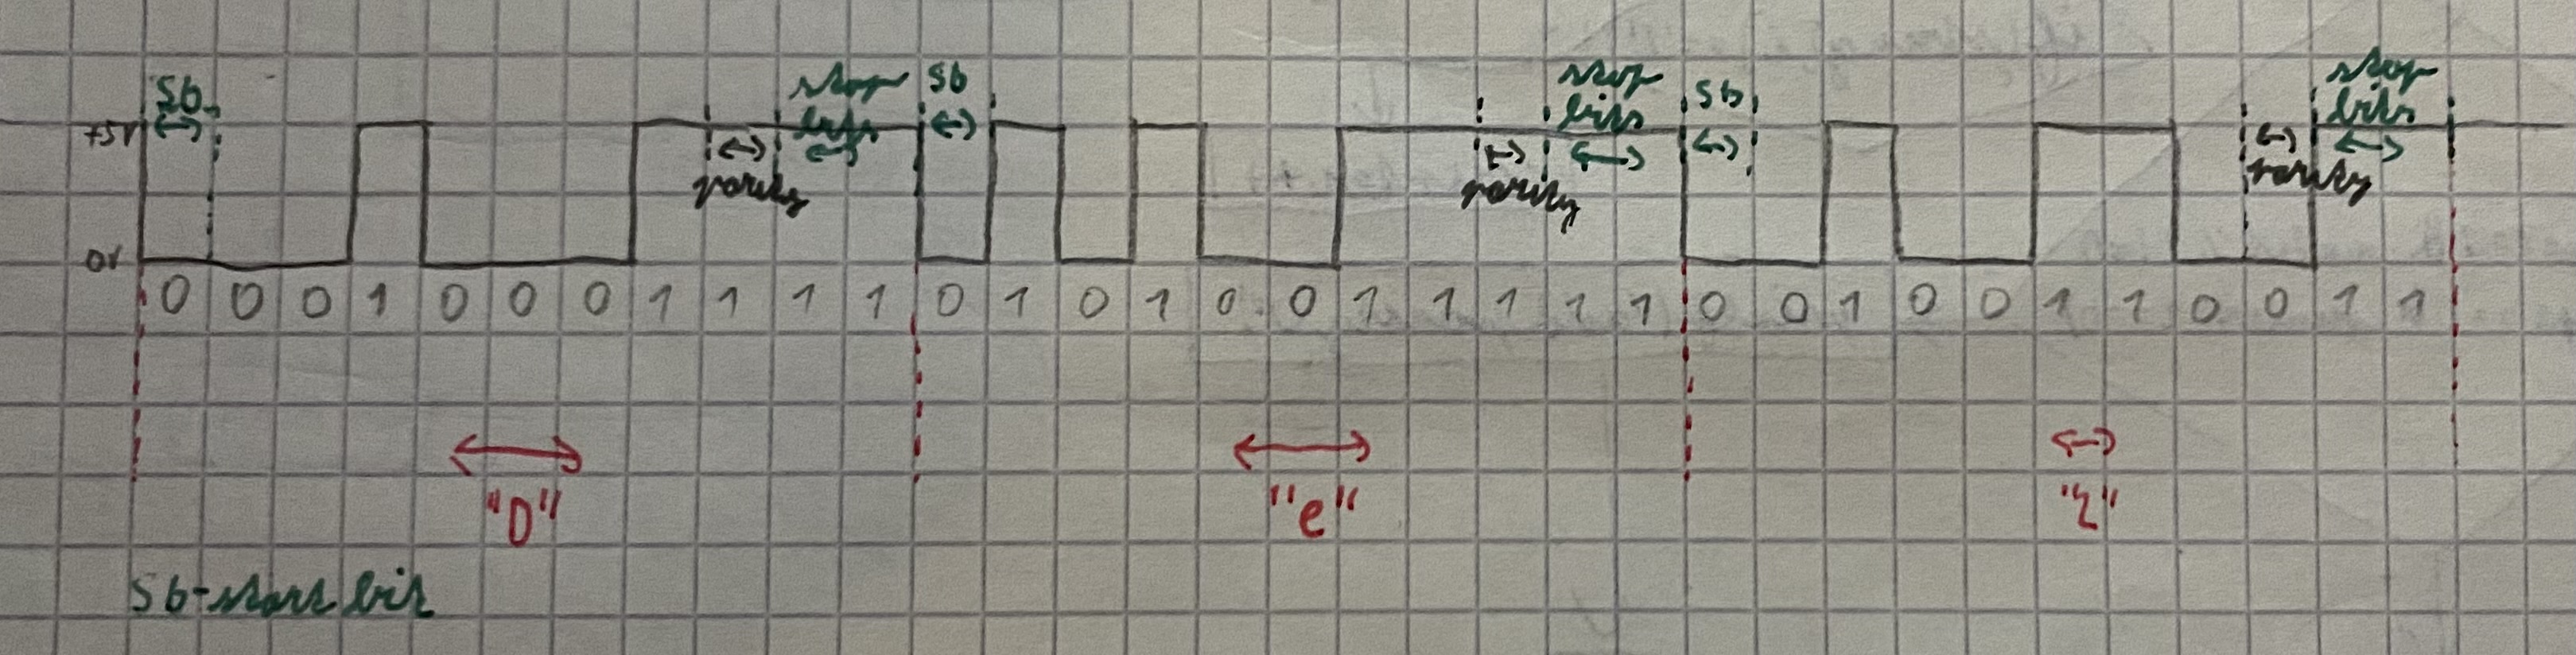 Sb stop Sb stop Sb stop
bits bits bits
+5V
parity parity parity
0V
0 0 0 1 0 0 0 1 1 1 1 0 1 0 1 0 0 1 1 1 1 1 0 0 1 0 0 1 1 0 0 1 1
"D" "e" "2"
Sb-start bit